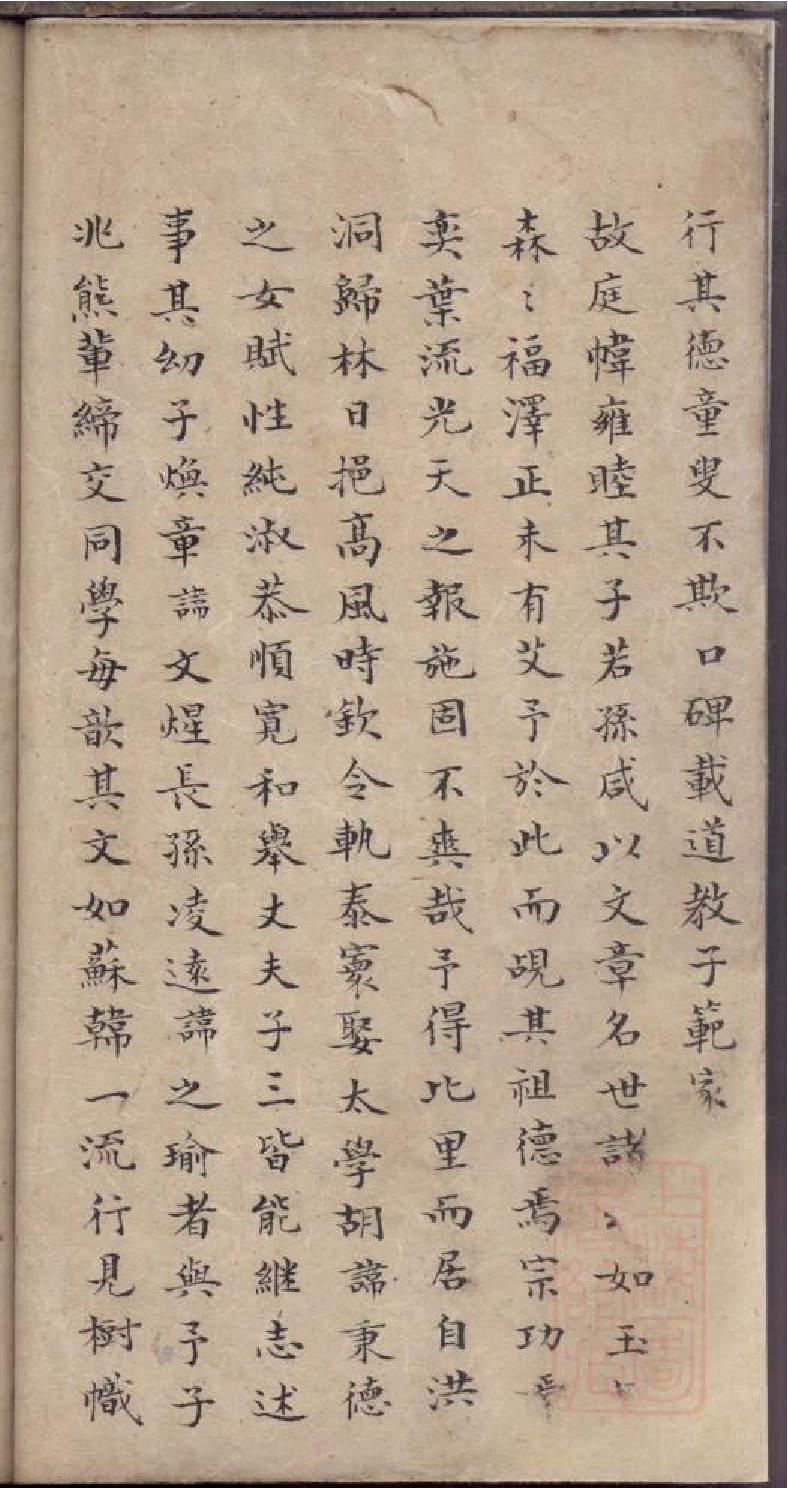 行其德童叟不欺口碑載道教子範家
故庭幃雍睦其子若孫咸以文章名世諸〻如玉
森〻福澤正未有艾予於此而覘其祖德焉宗功焉
奕葉流光天之報施固不爽哉予得比里而居自洪
洞歸林日挹髙風時欽令軌泰寰娶太學胡諱秉德
之女賦性純淑恭順寛和舉丈夫子三皆能継志述
事其幼子煥章諱文煋長孫凌遠諱之瑜者與予子
兆熊軰締交同學每歆其文如蘇韓一流行見樹幟